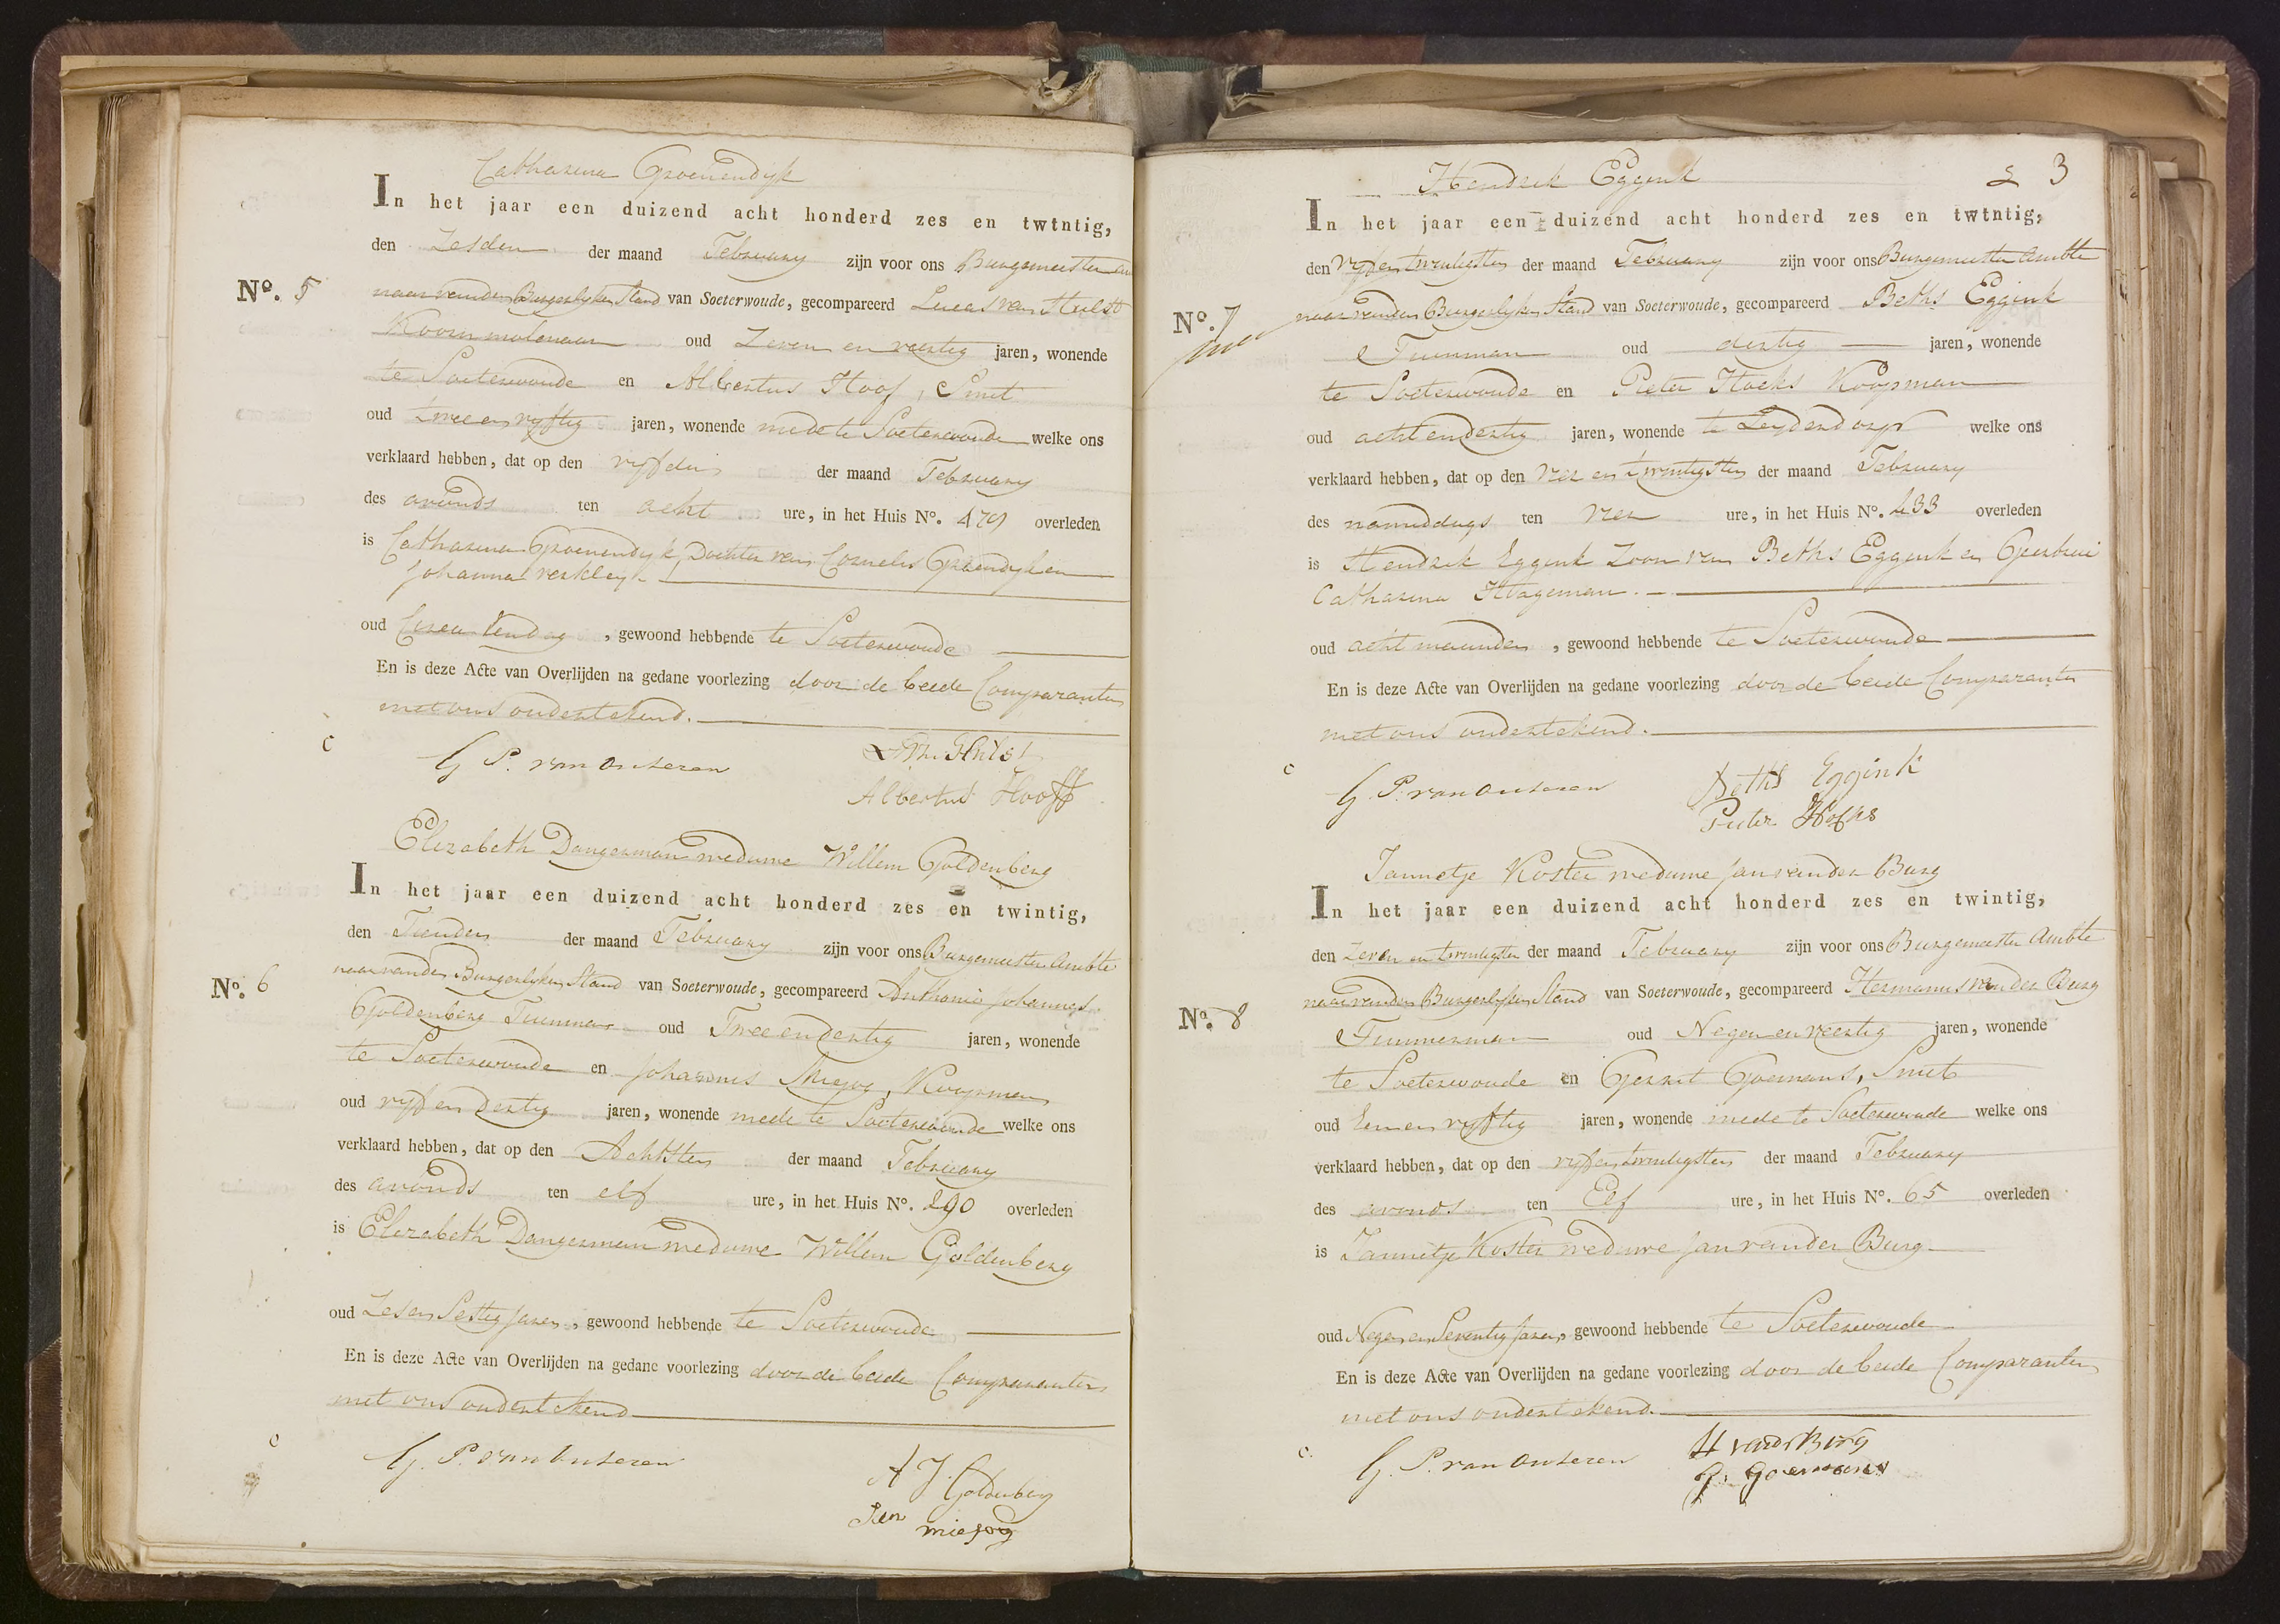 Catharina Groenendijk
In het jaar een duizend acht honderd zes en twtntig,
den Zesden der maand February zijn voor ons Burgemeester en
No. 5
van Soeterwoude, gecompareerd Lucas van Hulst
Koornmolenaar oud Zeven en veertig jaren, wonende
te Soeterwoude en Albertus Hoof, Smit
oud twee en vyftig jaren, wonende mede te Soeterwoude welke ons
verklaard hebben, dat op den vyfden der maand February
des avonds ten acht ure, in het Huis No. 479 overleden
is Catharina Groenendyk, Dochter van Cornelis Groendyk en
Johanna verkleij.
oud , gewoond hebbende te Soeterwoude
En is deze Acte van Overlijden na gedane voorlezing door de beide Comparanten
met ons ondertekend.
c
G P. van Outeren
Hulst
Albertus Hooff
Elizabeth Dangerman weduwe Willem Goldenberg
In het jaar een duizend acht honderd zes en twintig,
den Tienden der maand February zijn voor ons Burgemeester Ambte
No. 6
naar van den Burgerlyken Stand van Soeterwoude, gecompareerd Anthonie Johannes
Goldenberg Tuinman oud Twee en dertig jaren, wonende
te Soeterwoude en Johannis Koopman
oud vyf en dertig jaren, wonende mede te Soeterwoude welke ons
verklaard hebben, dat op den Achtsten der maand February
des avonds ten elf ure, in het Huis No. 290 overleden
is Elizabeth Dangerman weduwe Willem Goldenberg
oud Zes en Sestig Jaren, gewoond hebbende te Soeterwoude
En is deze Acte van Overlijden na gedane voorlezing door de beide Comparanten
met ons ondertekend
c
G. P. van Outeren
A J. Goldenberg
Hendrik Eggink
2 3
In het jaar een duizend acht honderd zes en twtntig,
den vyf en twintigsten der maand February zijn voor ons Burgemeester Ambte
No. 7
naar van den Burgerlyken Stand van Soeterwoude, gecompareerd Beths Eggink
Tuinman oud dertig jaren, wonende
te Soeterwoude en Pieter Hoeks Koopman
oud acht en dertig jaren, wonende te Leyderdorp welke ons
verklaard hebben, dat op den vier en twintigsten der maand February
des namiddags ten vier ure, in het Huis No. 433 overleden
is Hendrik Eggink Zoon van Beths Eggink en Geertrui
Catharina Hageman.
oud acht maanden, gewoond hebbende te Soeterwoude
En is deze Acte van Overlijden na gedane voorlezing door de beide Comparanten
met ons ondertekend.
c
G. P. van Outeren
Beths Eggink
Pieter Hoeks
Jannetje Koster weduwe Jan van der Burg
In het jaar een duizend acht honderd zes en twintig,
den Zeven en twintigsten der maand February zijn voor ons Burgemeester Ambte
No. 8
naar van den Burgerlyken Stand van Soeterwoude, gecompareerd Hermanus van der Burg
Timmerman oud Negen en veertig jaren, wonende
te Soeterwoude en Gerrit Goemans, Smit
oud Een en vyftig jaren, wonende mede te Soeterwoude welke ons
verklaard hebben, dat op den vyf en twintigsten der maand February
des avonds ten Elf ure, in het Huis No. 65 overleden
is Jannetje Koster weduwe Jan van der Burg
oud Negen en Seventig Jaren, gewoond hebbende te Soeterwoude
En is deze Acte van Overlijden na gedane voorlezing door de beide Comparanten
met ons ondertekend.
c.
G. P. van Outeren
H van dr Burg
G. Goemans